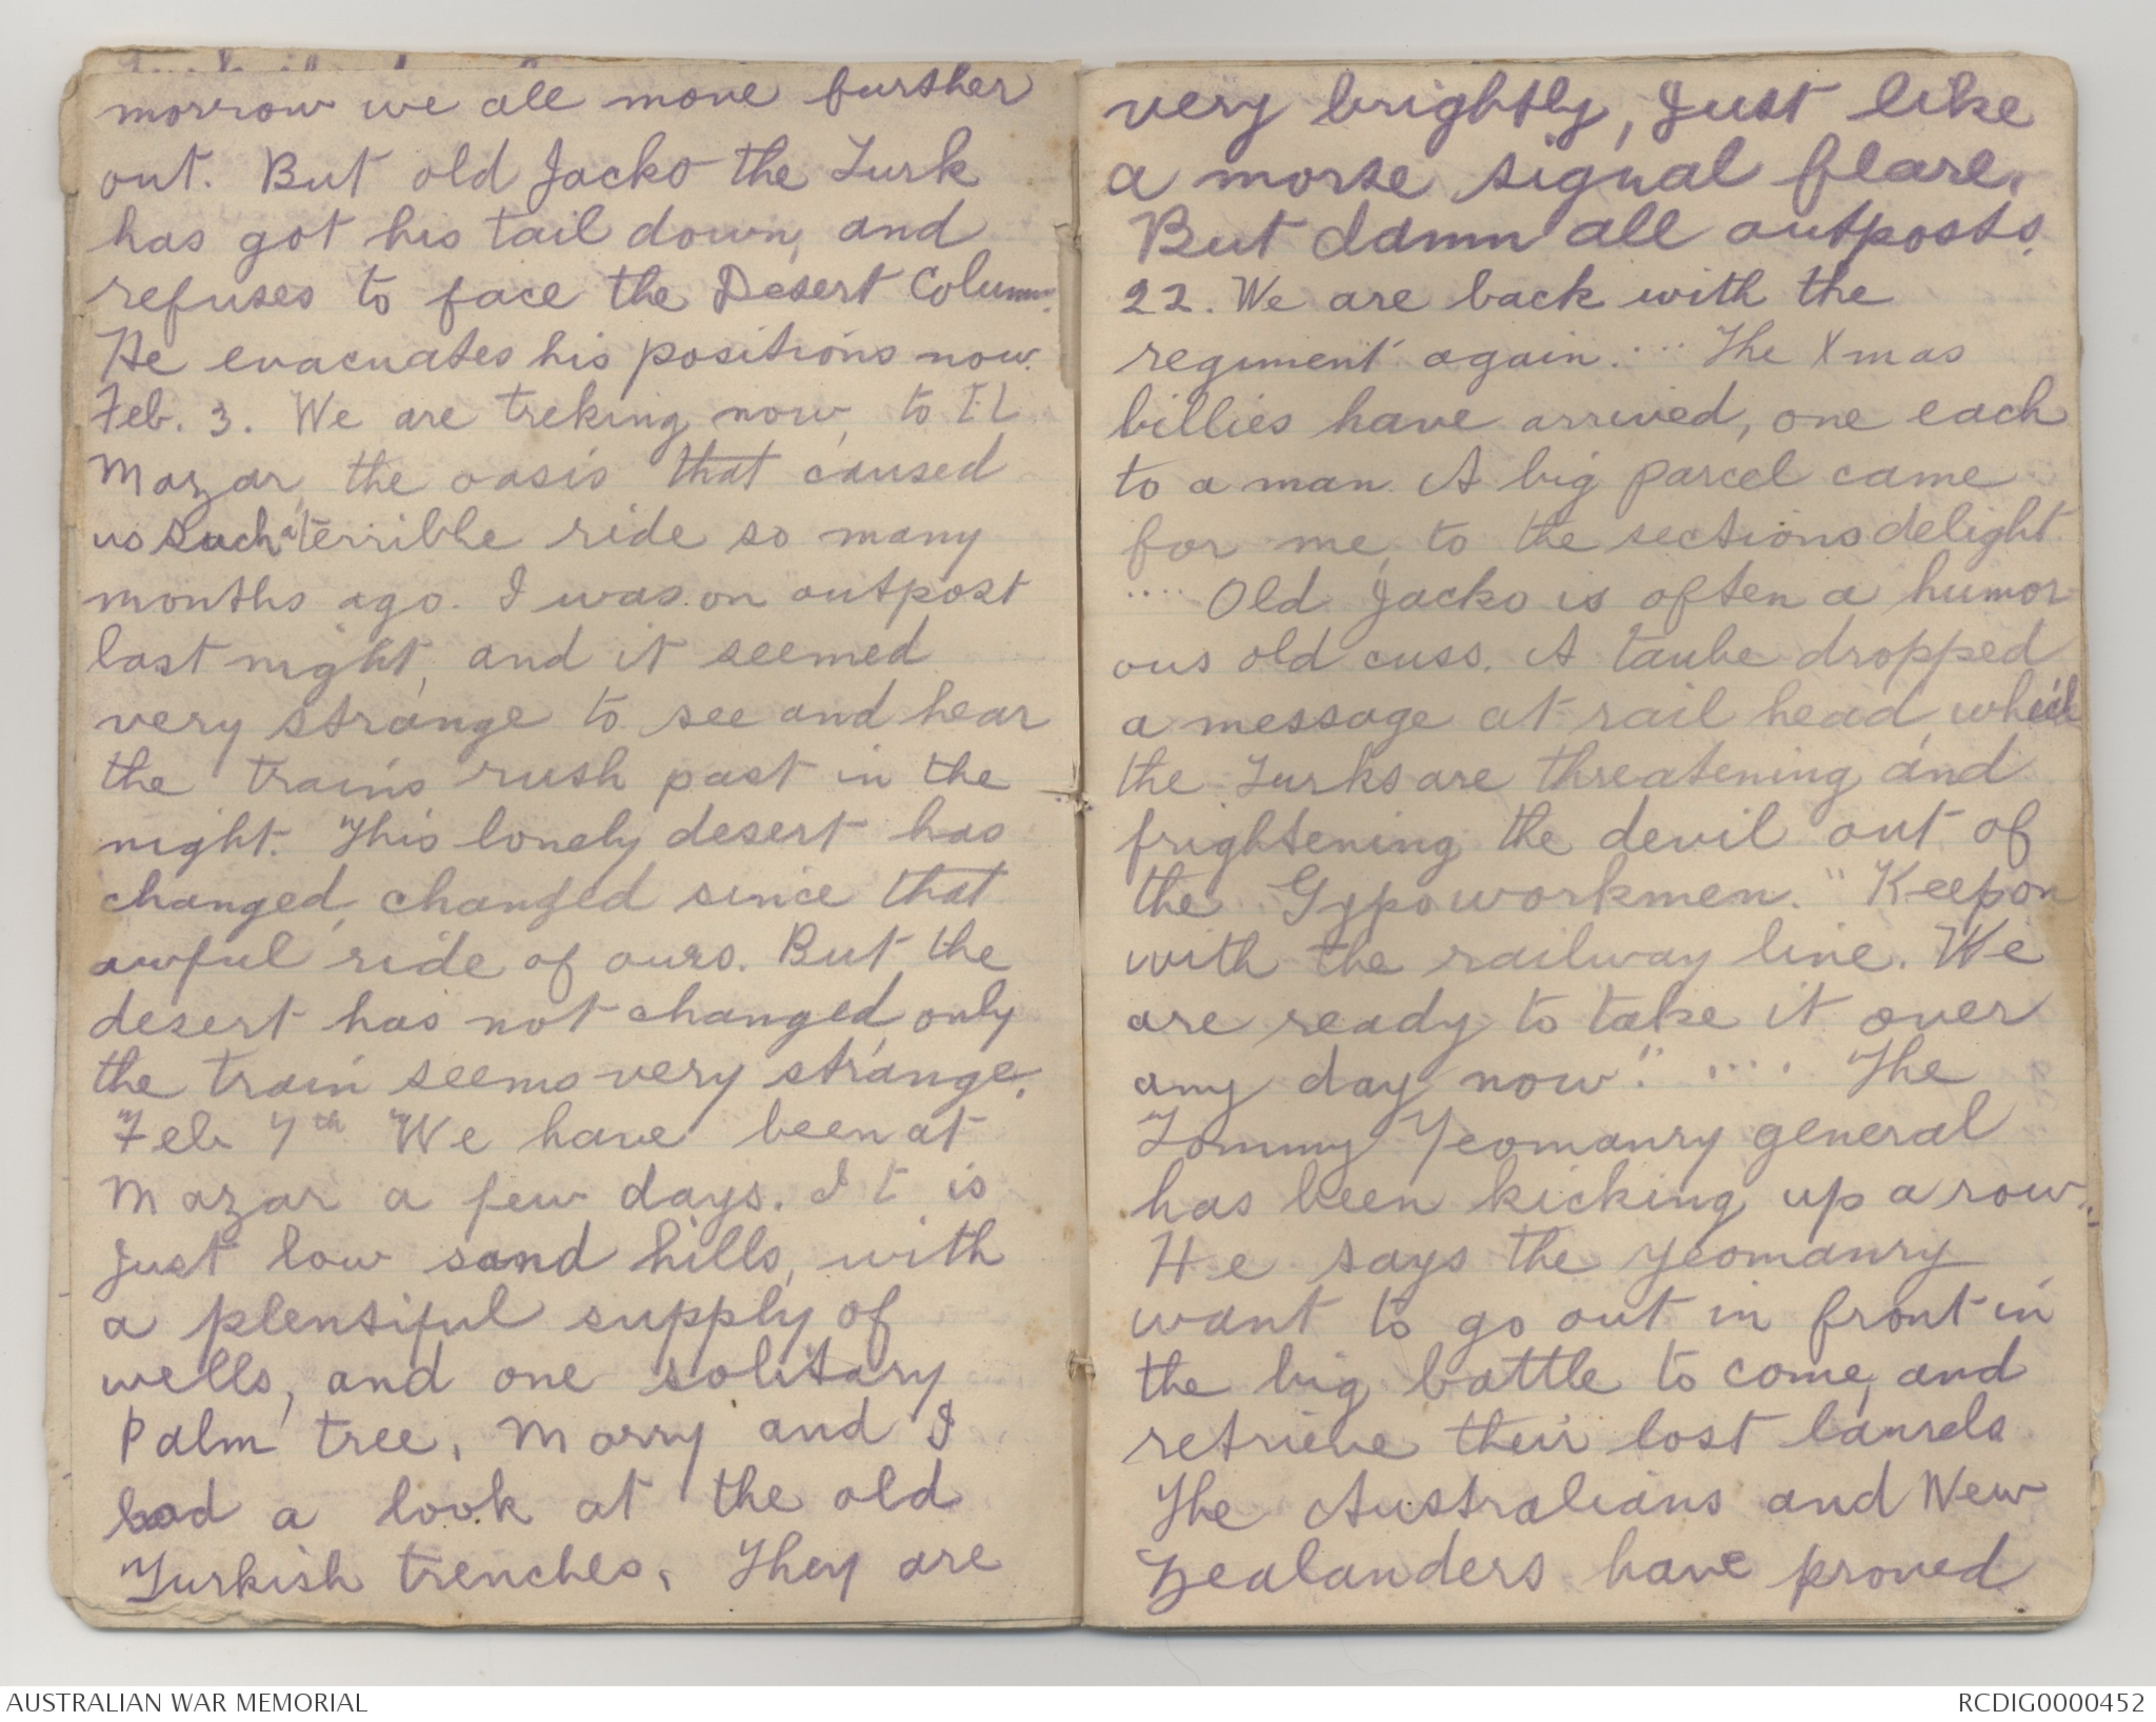 morrow we all move further
out. But old Jacko the Turk
has got his tail down, and
refuses to face the Desert Column.
He evacuates his positions now.
Feb. 3. We are treking now, to El
Mazar, the oasis that caused
us such a terrible ride so many
months ago. I was on outpost
last night, and it seemed
very strange to see and hear
the trains rush past in the
night. This lonely desert has
changed, changed since that
awful ride of ours. But the
desert has not changed, only
the train seems very strange.
Feb 7th We have been at
Mazar a few days. It is
just low sand hills, with
a plentiful supply of
wells, and one solitary
Palm tree. Morry and I
had a look at the old
Turkish trenches. They are
very brightly, just like
a morse signal flare.
But damn all outposts.
22. We are back with the
regiment again.... The Xmas
billies have arrived, one each
to a man. A big parcel came
for me, to the sections delight
.... Old Jacko is often a humor
ous old cuss. A taube dropped
a message at rail head, which
the Turks are threatening and
frightening the devil out of
the Gypo workmen. "Keep on
with the railway line. We
are ready to take it over
any day now." .... The
Tommy Yeomanry general
has been kicking up a row.
He says the yeomanry
want to go out in front in
the big battle to come, and
retrieve their lost laurels
The Australians and New
Zealanders have proved
AUSTRALIAN WAR MEMORIAL
RCDIG0000452